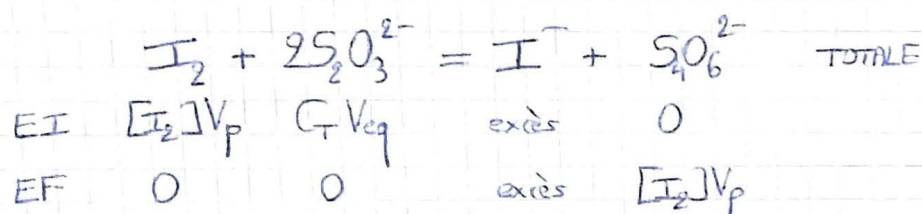 I₂ + 2S₂O₃²⁻ = I⁻ + S₄O₆²⁻ TOTALE
EI [I₂]Vp CT Véq excès 0
EF 0 0 excès [I₂]Vp